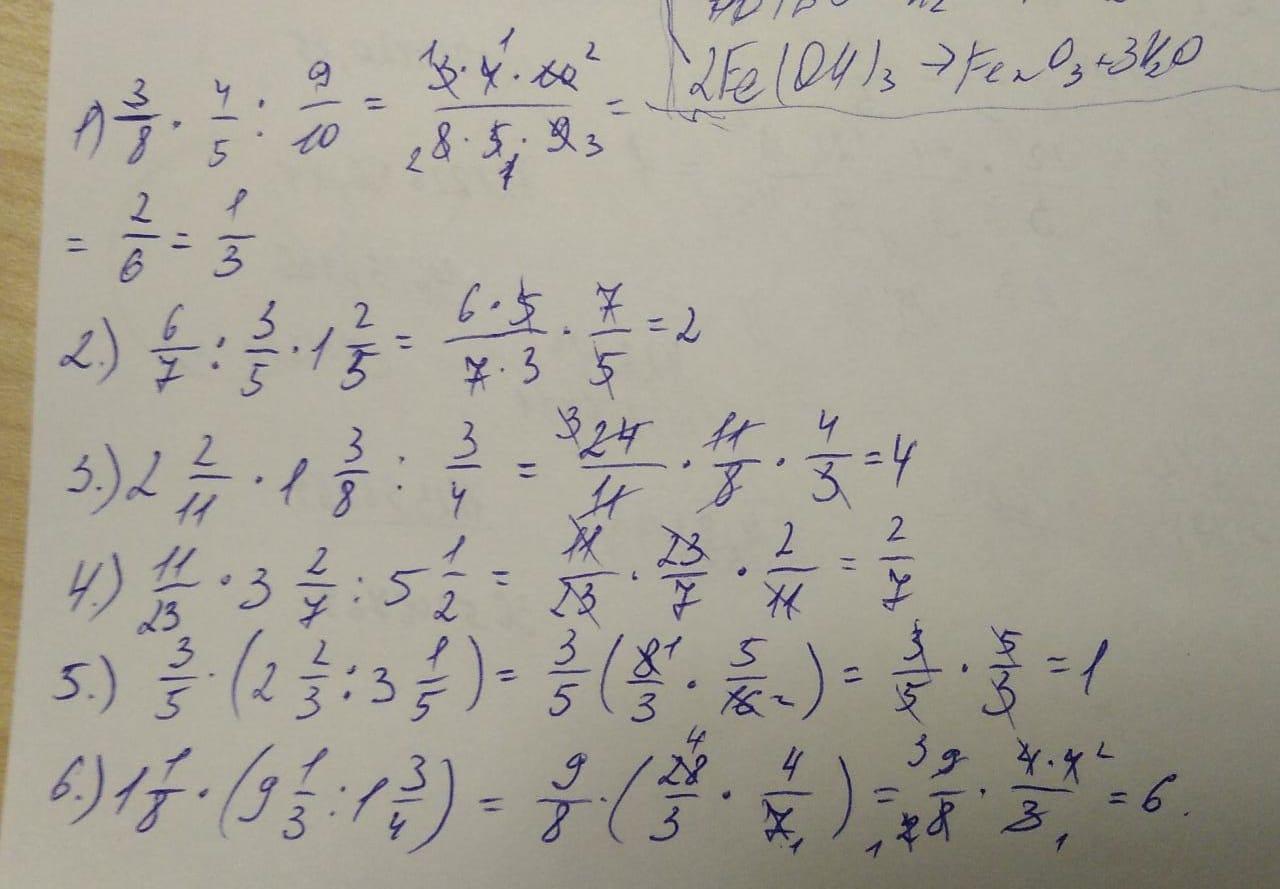 2Fe(OH)₃ → Fe₂O₃ + 3H₂O
1) 3/8 · 4/5 : 9/10 = (3 · 4 · 10)/(8 · 5 · 9) =
= 2/6 = 1/3
2.) 6/7 : 3/5 · 1 2/5 = (6 · 5)/(7 · 3) · 7/5 = 2
3.) 2 2/11 · 1 3/8 : 3/4 = 24/11 · 11/8 · 4/3 = 4
4.) 11/23 · 3 2/7 : 5 1/2 = 11/23 · 23/7 · 2/11 = 2/7
5.) 3/5 · (2 2/3 : 3 1/5) = 3/5 (8/3 · 5/16) = 3/5 · 5/3 = 1
6.) 1 1/8 · (9 1/3 : 1 3/4) = 9/8 · (28/3 · 4/7) = 9/8 · (4 · 4)/3 = 6.